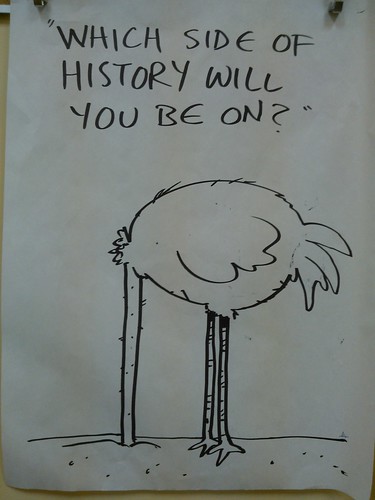 "WHICH SIDE OF
HISTORY WILL
YOU BE ON?"